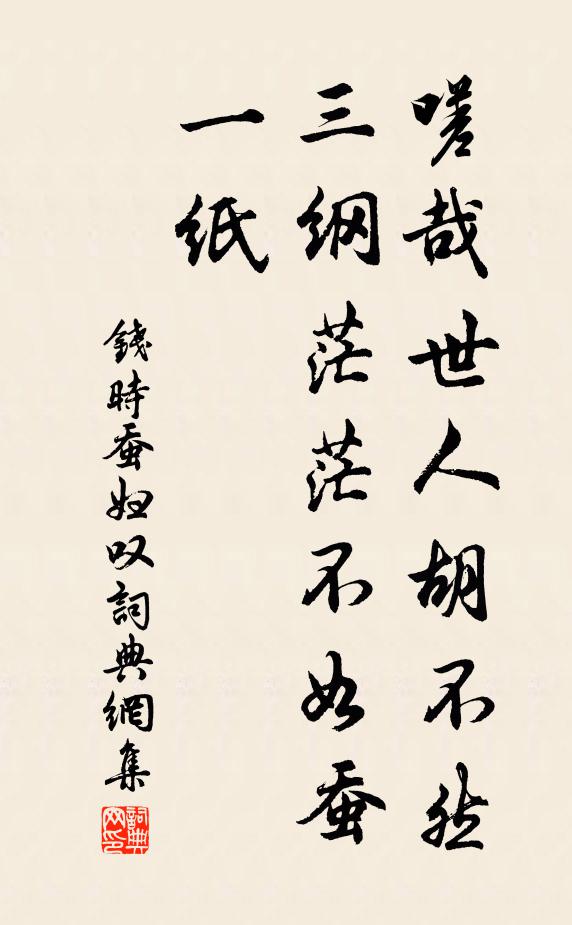 嗟哉世人胡不然
三纲茫茫不如蚕
一纸
錢時蚕妇叹詞典網集
詞典网印